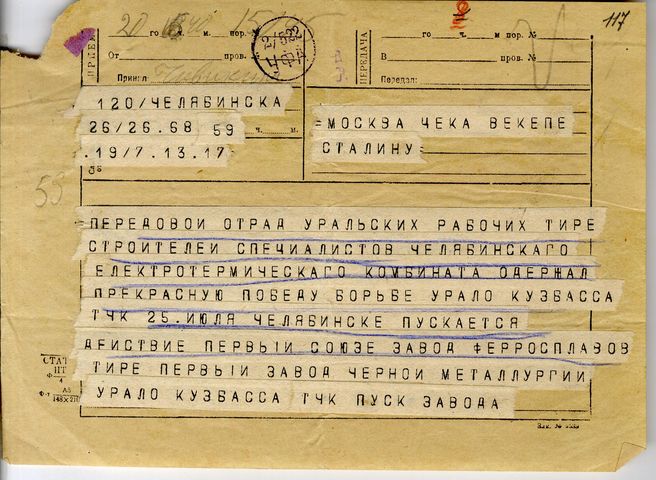 117
го ч. м. пор. №
го ч. м. пор. №
ПРИЕМ
От пров. №
Принял
ПЕРЕДАЧА
В пров. №
Передал:
120/ЧЕЛЯБИНСКА
26/26.68 59 ч. м.
.19/7.13.17
=МОСКВА ЧЕКА ВЕКЕПЕ
СТАЛИНУ=
55
ПЕРЕДОВОИ ОТРАД УРАЛЬСКИХ РАБОЧИХ ТИРЕ
СТРОИТЕЛЕИ СПЕЦИАЛИСТОВ ЧЕЛЯБИНСКАГО
ЕЛЕКТРОТЕРМИЧЕСКАГО КОМБИНАТА ОДЕРЖАЛ
ПРЕКРАСНУЮ ПОБЕДУ БОРЬБЕ УРАЛО КУЗБАССА
ТЧК 25.ИЮЛЯ ЧЕЛЯБИНСКЕ ПУСКАЕТСЯ
ДЕЙСТВИЕ ПЕРВЫЙ СОЮЗЕ ЗАВОД ФЕРРОСПЛАВОВ
ТИРЕ ПЕРВЫЙ ЗАВОД ЧЕРНОЙ МЕТАЛЛУРГИИ
УРАЛО КУЗБАССА ТЧК ПУСК ЗАВОДА